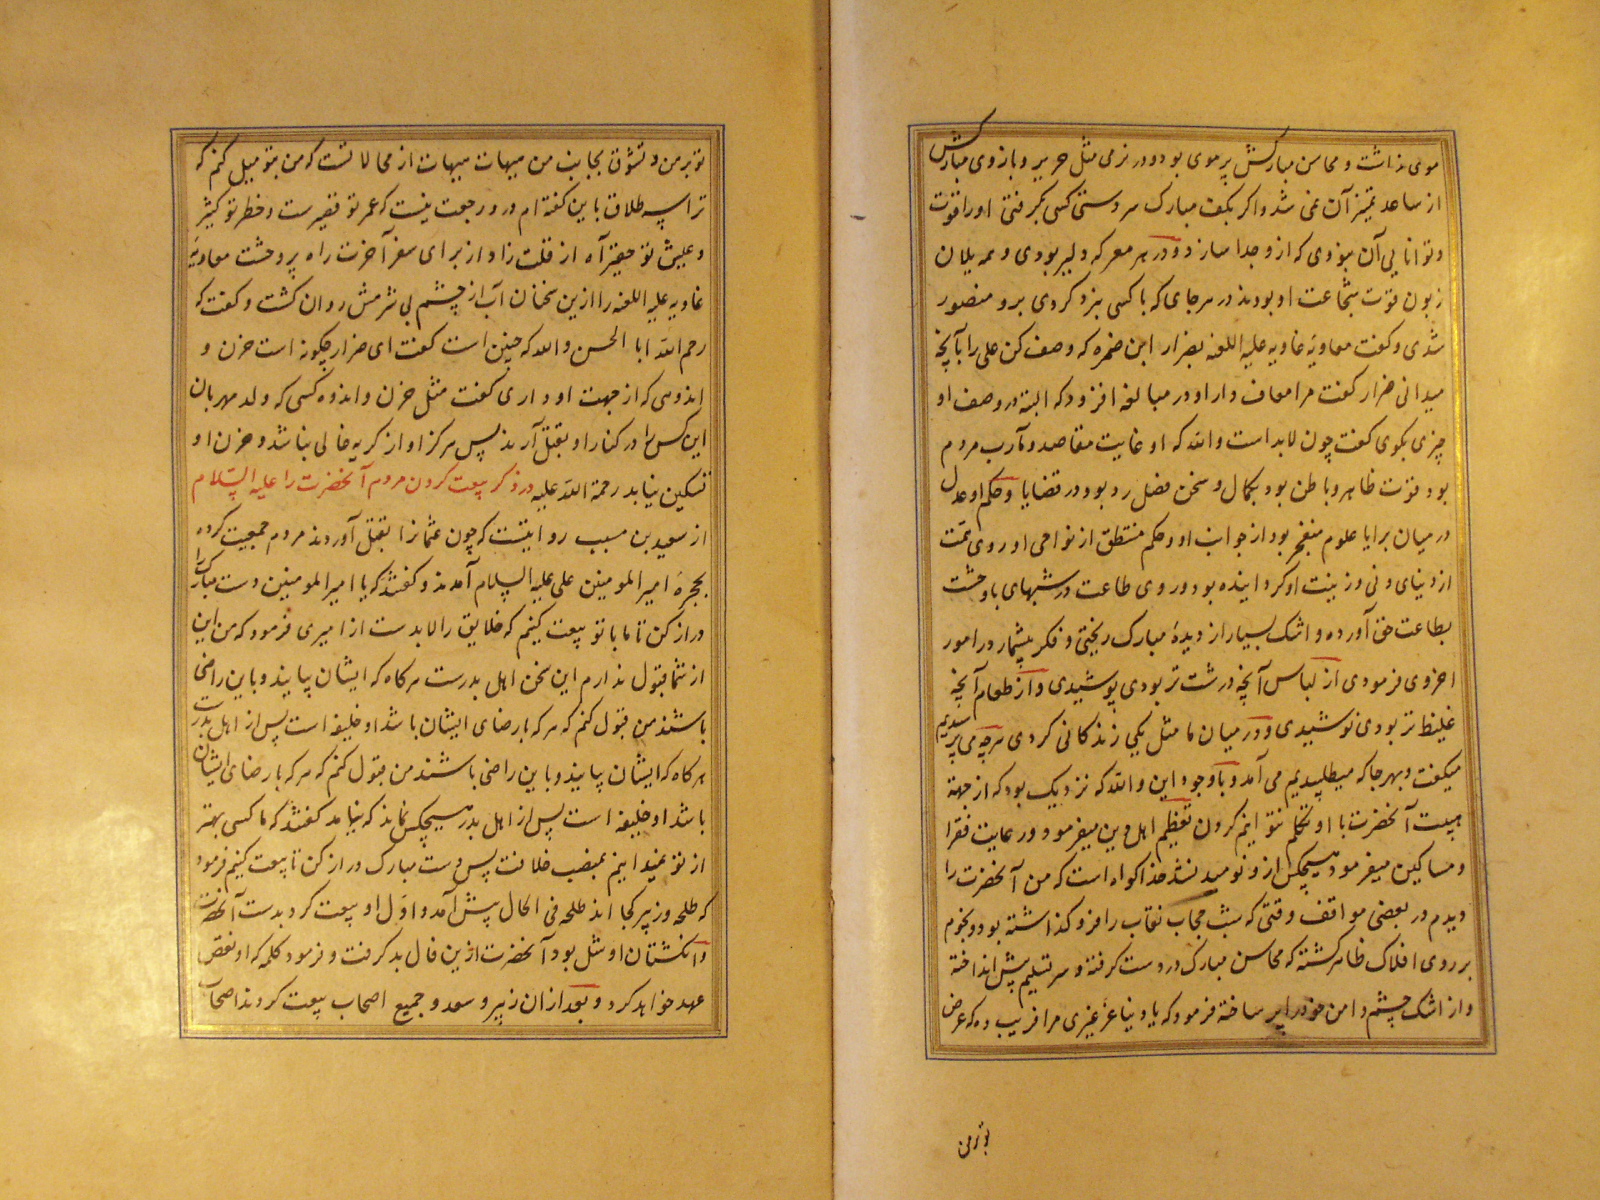 موی نداشت و محاسن مبارکش پر موی بود و در نرمی مثل حریر و بازوی مبارکش
از ساعد تمیز آن نمی شد و اگر بکف مبارک سر دستی کسی بگرفتی او را قوت
و توانایی آن نبودی که از و جدا سازد و در هر معرکه دلیر بودی و همه یلان
زبون قوت شجاعت او بودند در هر جای که با کسی نبرد کردی برو منصور
شدی و گفت معاویه غاویه علیه اللعنه بضرار ابن ضمره که وصف کن علی را بآنچه
میدانی ضرار گفت مرا معاف دار او در مبالغه افزود که البته در وصف او
چیزی بگوی گفت چون لابد است والله که او غایت مقاصد و مآرب مردم
بود قوت ظاهر و باطن بود بکمال و سخن فصل رد بود در قضایا و حکم او عدل
در میان برایا علوم منفجر بود از جوانب او و حکم منتطق از نواحی او روی همت
از دنیای دنی و زینت او گردانیده بود و روی طاعت در شبهای با وحشت
بطاعت حق آورده و اشک بسیار از دیدهٔ مبارک ریختی و فکر بیشمار در امور
اخروی فرمودی از لباس آنچه درشت تر بودی پوشیدی و از طعام آنچه
غلیظ تر بودی نوشیدی و در میان ما مثل یکی زندکانی کردی هر چه می پرسیدیم
میگفت و بهر جا که میطلبیدیم می آمد و با وجود این والله که نزدیک بود که از جهة
هیبت آنحضرت با او تکلم نتوانیم کردن تعظیم اهل دین میفرمود و رعایت فقرا
و مساکین میفرمود هیچکس از و نومید نشد خدا کواه است که من آنحضرت را
دیدم در بعضی مواقف وقتی که شب حجاب نقاب را فرو گذاشته بود و نجوم
بر روی افلاک ظاهر گشته که محاسن مبارک در دست گرفته و سر تسلیم پیش انداخته
و از اشک چشم دامن خود را پر ساخته فرمود که یا دنیا غری غیری مرا فریب ده که عرض
تو بر من
تو بر من و تشوق بجانب من هیهات هیهات از محالاتست که من بتو میل کنم که
ترا سه طلاق باین گفته ام درو رجعت نیست که عمر تو قصیر ست و خطر تو کثیر
و عیش تو حقیر آه از قلت زاد از برای سفر آخرت راه پر وحشت معاویه
غاویه علیه اللعنه را ازین سخنان آب از چشم بی شرمش روان گشت و گفت که
رحم الله ابا الحسن والله که چنین است گفت ای ضرار چگونه است حزن و
اندوهی که از جهت او داری گفت مثل حزن و اندوه کسی که ولد مهربان
این کس را در کنار او بقتل آرند پس هرگز او از گریه خالی نباشد و حزن او
تسکین نیابد رحمة الله علیه در ذکر بیعت کردن مردم آنحضرت را علیه السلام
از سعید بن مسیب روایتست که چون عثمانرا بقتل آوردند مردم جمعیت کرده
بحجرهٔ امیر المومنین علی علیه السلام آمدند و گفتند که یا امیر المومنین دست مبارک را
دراز کن تا ما با تو بیعت کنیم که خلایق را لابدست از امیری فرمود که من این
از شما قبول ندارم این سخن اهل بدرست هرکاه که ایشان بیایند و باین راضی
باشند من قبول کنم که هر که با رضای ایشان باشد او خلیفه است پس از اهل بدر
هرکاه که ایشان بیایند و باین راضی باشند من قبول کنم که هر که با رضای ایشان
باشد او خلیفه است پس از اهل بدر هیچکس نماند که نیامد گفتند که ما کسی بهتر
از تو نمیدانیم بمنصب خلافت پس دست مبارک دراز کن تا بیعت کنیم فرمود
که طلحه و زبیر کجا اند طلحه فی الحال پیش آمد و اول او بیعت کرد بدست آنحضرت
و انکشتان او شل بود آنحضرت ازین فال بد گرفت و فرمود کلمه که او نقض
عهد خواهد کرد و بعد از ان زبیر و سعد و جمیع اصحاب بیعت کردند اصحاب